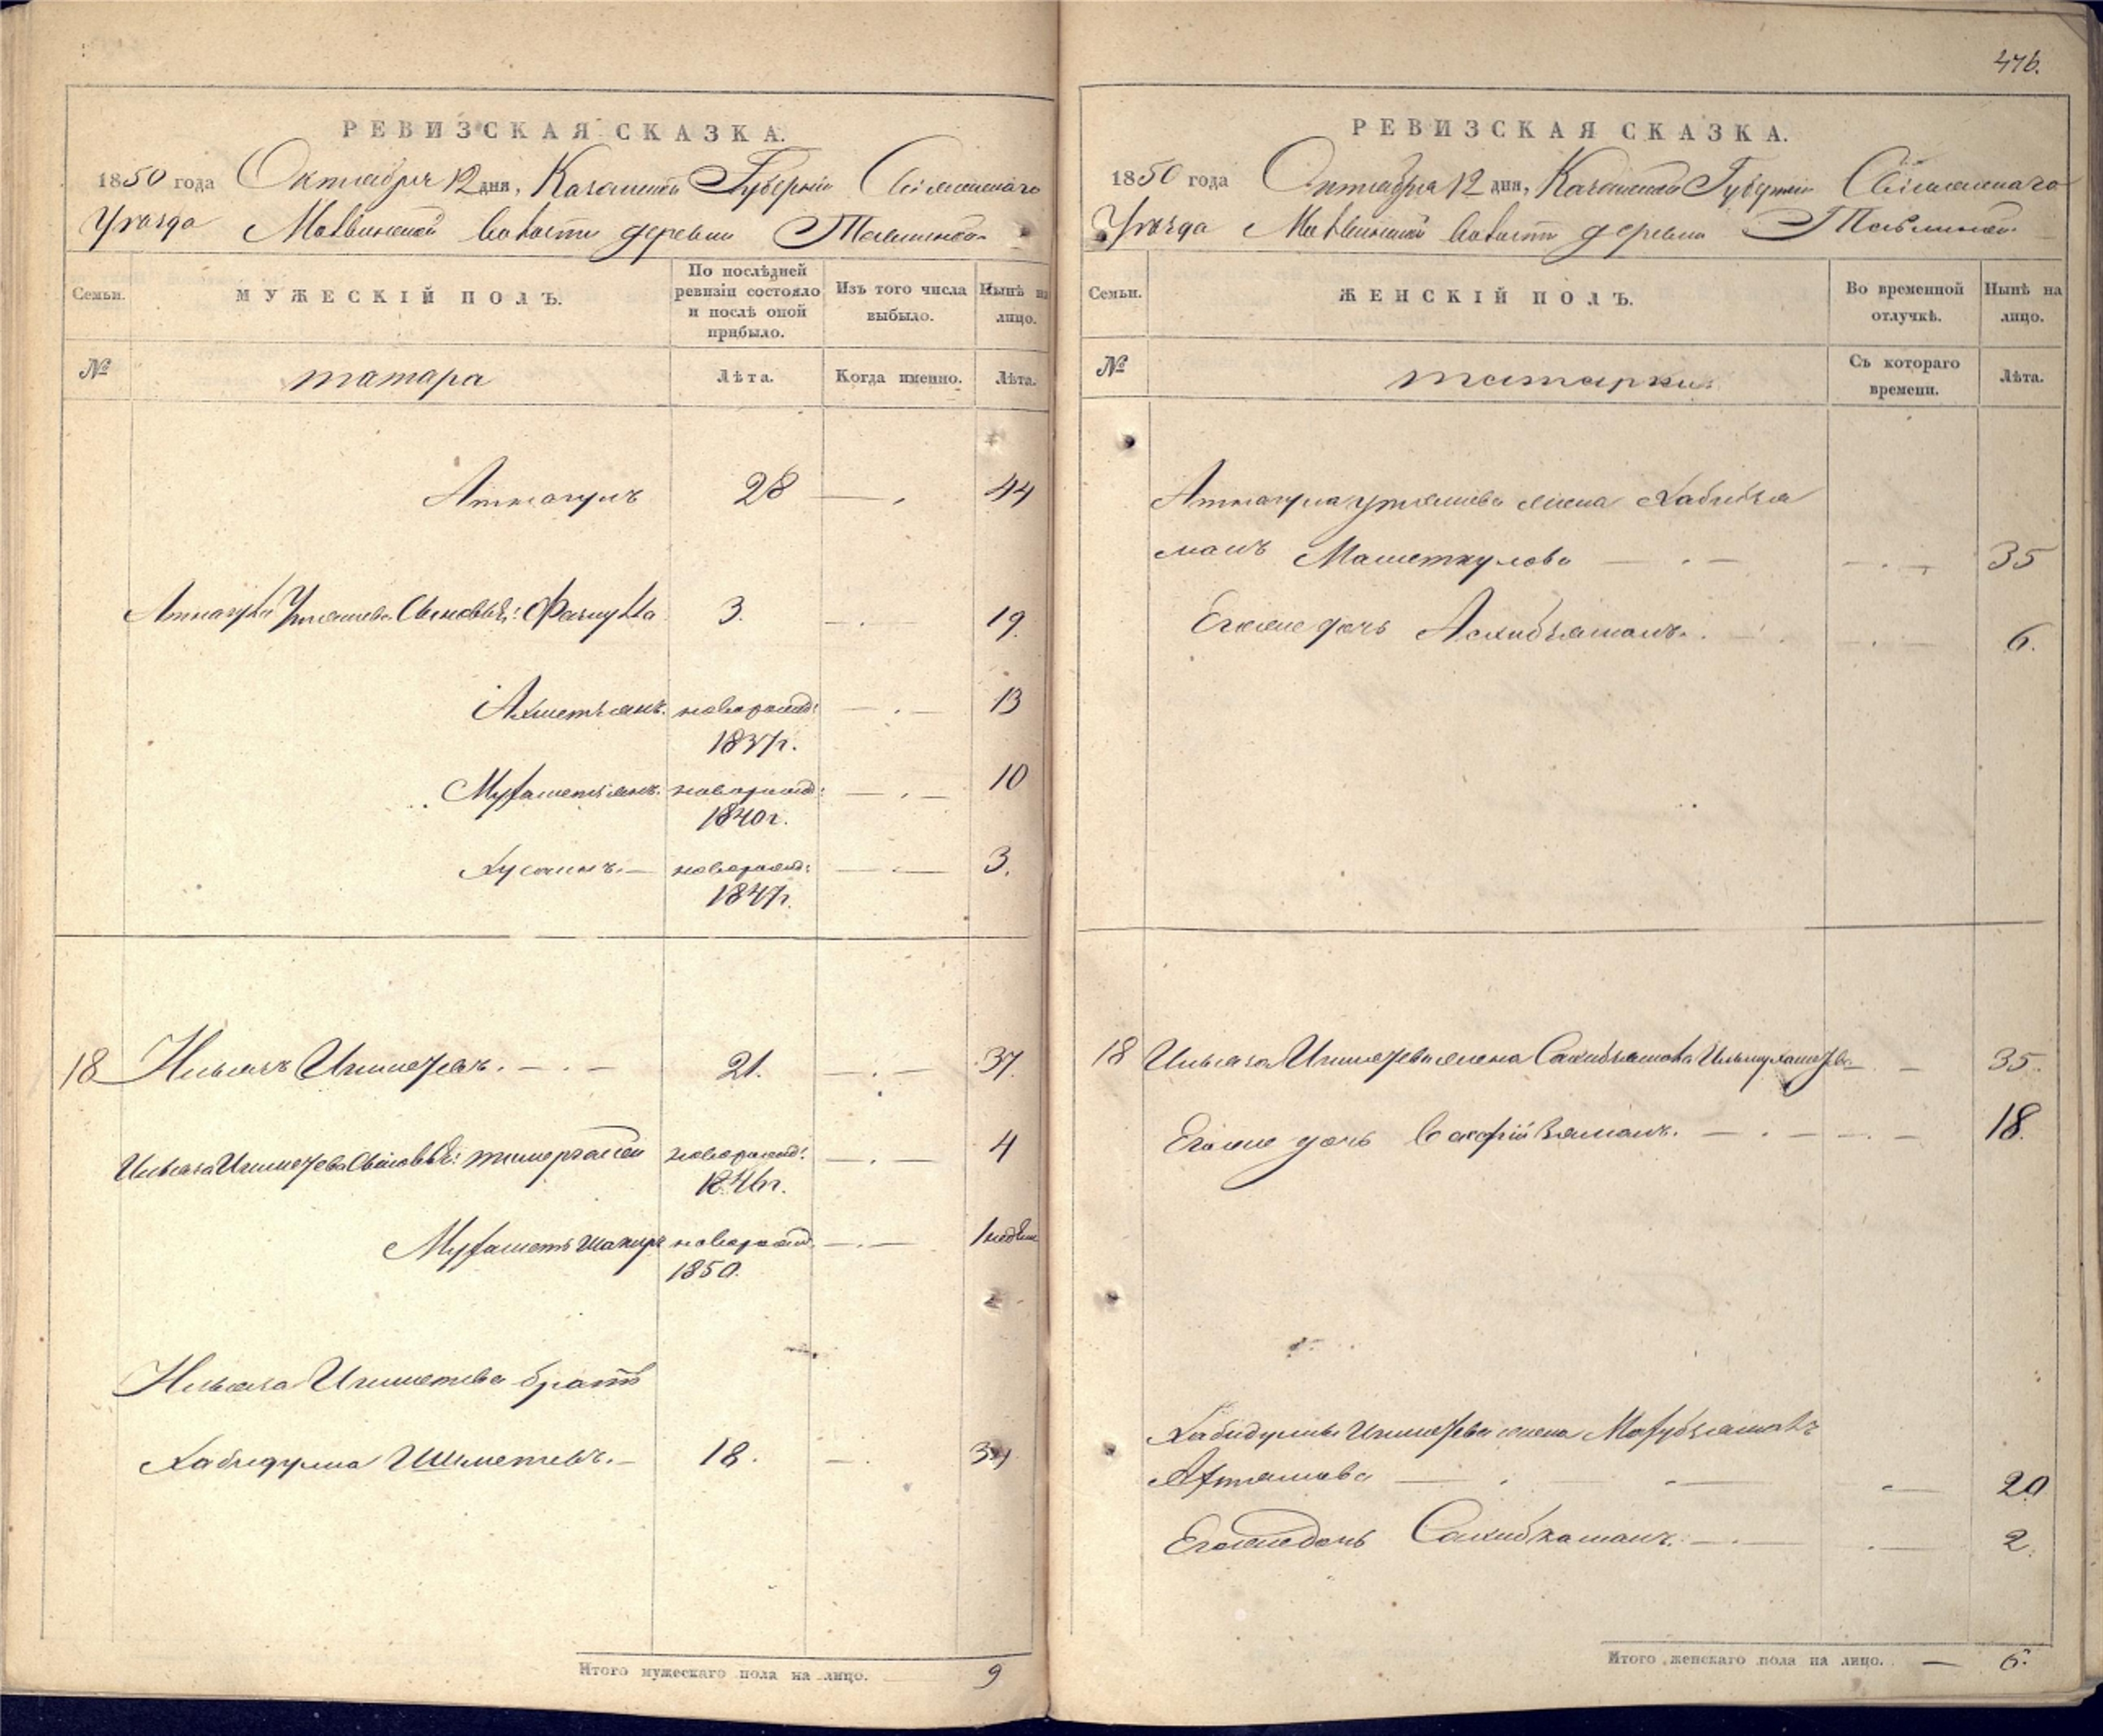 476.
РЕВИЗСКАЯ СКАЗКА.
1850 года Октября 12 дня, Казанской Губернии Свіяжскаго
Уѣзда волости деревни
Семьи.
МУЖЕСКІЙ ПОЛЪ.
По послѣдней ревизіи состояло и послѣ оной прибыло.
Изъ того числа выбыло.
Нынѣ на лицо.
№
татара
Лѣта.
Когда именно.
Лѣта.
Аткагулъ 28 — . 44
Аткагула Утяшева Сыновья: 3. — . — 19.
Ахметьянъ. новорожд: — . — 13
1837г.
Мухаметьянъ. новорожд: — . — 10
1840г.
Хусаинъ. — новорожд: — . — 3.
1847г.
18 Ильязъ Ишметевъ. — . — 21. — . — 37.
Ильяза Ишметева Сыновья: тимергалей новорожд: — . — 4
1846г.
Мухаметъ шакиръ новорожд. — . — 1 недѣли
1850.
Ильяза Ишметева братъ
Хабидулла Ишметевъ. — 18. — . 34
Итого мужескаго пола на лицо. 9
РЕВИЗСКАЯ СКАЗКА.
1850 года Октября 12 дня, Казанской Губерніи Свіяжскаго
Уѣзда волости деревни
Семьи.
ЖЕНСКІЙ ПОЛЪ.
Во временной отлучкѣ.
Нынѣ на лицо.
№
татарки
Съ котораго времени.
Лѣта.
Аткагула Утяшева жена Хабибзя
малъ Маметкулова — . — — . — 35
Егоже дочь Асхабзямалъ. — . — 6.
18 Ильяза Ишметева жена — 35.
Егоже дочь — . — — . — 18.
Хабидуллы Ишметева жена Махубзямалъ
— . — — 20
Егоже дочь Сахибжамалъ. — . — . — 2.
Итого женскаго пола на лицо. — 6.